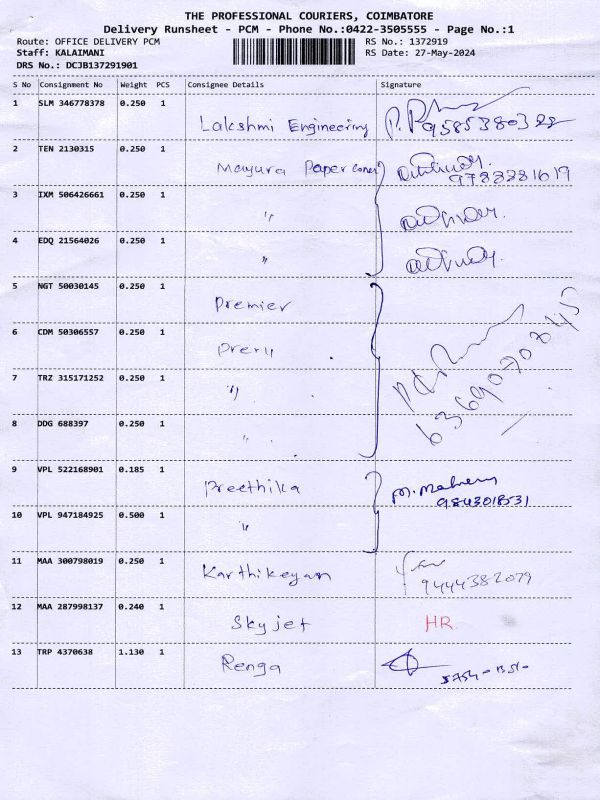 THE PROFESSIONAL COURIERS, COIMBATORE
Delivery Runsheet - PCM - Phone No.:0422-3505555 - Page No.:1
Route: OFFICE DELIVERY PCM
RS No.: 1372919
Staff: KALAIMANI
RS Date: 27-May-2024
DRS No.: DCJB137291901
S No Consignment No Weight PCS Consignee Details Signature
1 SLM 346778378 0.250 1
Lakshmi Engineering 9585380322
2 TEN 2130315 0.250 1
Mayura Paper Cones 9788881619
3 IXM 506426661 0.250 1
"
4 EDQ 21564026 0.250 1
"
5 NGT 50030145 0.250 1
Premier
6 CDM 50306557 0.250 1
7 TRZ 315171252 0.250 1
"
8 DDG 688397 0.250 1
"
9 VPL 522168901 0.185 1
Preethika
10 VPL 947184925 0.500 1
"
11 MAA 300798019 0.250 1
Karthikeyan 9444382079
12 MAA 287998137 0.240 1
Skyjet HR
13 TRP 4370638 1.130 1
Renga